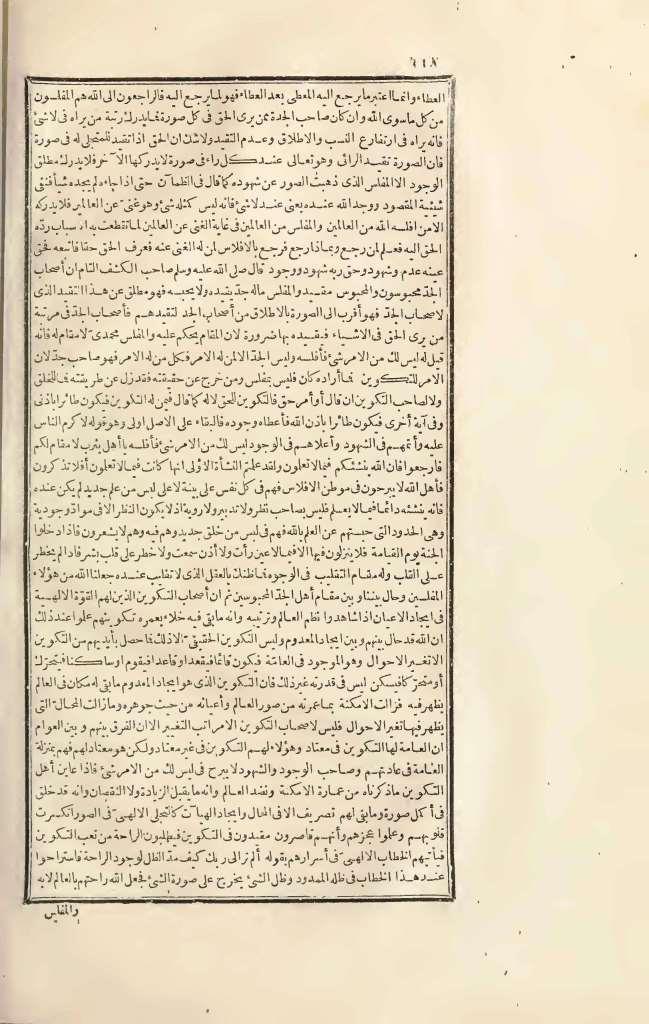 ٦١٨
العطاء وانما اعتبر ما يرجع اليه المعطى بعد العطاء فهو لما يرجع اليه فالراجعون الى الله هم المفلسون
من كل ماسوى الله وان كان صاحب الجدة ممن يرى الحق فى كل صورة فما يدرك رتبة من يراه فى لاشئ
فانه يراه فى ارتفاع النسب والاطلاق وعدم التقييد ولاشك ان الحق اذا تقيد للمتجلى له فى صورة
فان الصورة تقيد الرائى وهو تعالى عند كل راء فى صورة لا يدركها الآخر فلا يدرك مطلق
الوجود الا المفلس الذى ذهبت الصور عن شهوده كما قال فى الظمآن حتى اذا جاءه لم يجده شيأ فنفى
شيئية المقصود ووجد الله عنده يعنى عند لاشئ فانه ليس كمثله شئ وهو غنى عن العالمين فلا يدركه
الا من افلسه الله من العالمين والمفلس من العالمين فى غاية الغنى عن العالمين لما تقطعت به الاسباب رده
الحق اليه فعلم لمن رجع وبماذا رجع فرجع بالافلاس لمن له الغنى عنه فعرف الحق حقا فاتبعه فحق
عينه عدم وشهود وحق ربه شهود ووجود قال صلى الله عليه وسلم صاحب الكشف التام ان أصحاب
الجد محبوسون والمحبوس مقيد والمفلس ماله جد يقيده ولا يحبسه فهو مطلق عن هذا التقييد الذى
لاصحاب الجد فهو أقرب الى الصورة بالاطلاق من أصحاب الجد لتقيدهم فأصحاب الجد فى مرتبة
من يرى الحق فى الاشياء فيقيده بها ضرورة لان المقام يحكم عليه والمفلس محمدى لا مقام له فانه
قيل له ليس لك من الامر شئ فأفلسه وليس الجد الا لمن له الامر فكل من له الامر فهو صاحب جد لان
الامر للتكوين فما أراده كان فليس بمفلس ومن خرج عن حقيقته فقد زل عن طريقته فما للخلق
ولا لصاحب التكوين ان قال أو أمر حق فالتكوين للحق لا له كما قال فيمن له التكوين فيكون طائرا باذنى
وفى آية أخرى فيكون طائرا باذن الله فأعطاه وجوده فالبقاء على الاصل اولى وهو قوله لاكرم الناس
عليه وأتمهم فى الشهود وأعلاهم فى الوجود ليس لك من الامر شئ فأفلسه يا أهل يثرب لا مقام لكم
فارجعوا فان الله ينشئكم فيما لا تعلمون ولقد علمتم النشأة الاولى انها كانت فيما لا تعلمون أفلا تذكرون
فأهل الله لا يبرحون فى موطن الافلاس فهم فى كل نفس على بينة لا على لبس من علم جديد لم يكن عنده
فانه ينشئه دائما فيما لا يعلم فليس بصاحب نظر ولا تدبير ولا روية اذ لا يكون النظر الا فى مواد وجودية
وهى الحدود التى حبستهم عن العلم بالله فهم فى لبس من خلق جديد وهم فيه وهم لا يشعرون فاذا دخلوا
الجنة يوم القيامة فلا ينزلون فيها الا فيما لا عين رأت ولا أذن سمعت ولا خطر على قلب بشر فاذا لم يخطر
على القلب وله مقام التقليب فى الوجوه فما ظنك بالعقل الذى لا تقليب عنده جعلنا الله من هؤلاء
المفلسين وحال بيننا وبين مقام أهل الجد المحبوسين ثم ان أصحاب التكوين الذين لهم القوة الالهية
فى ايجاد الاعيان اذا شاهدوا نظم العالم وترتيبه وانه ما بقى فيه خلاء يعمره تكوينهم علموا عند ذلك
ان الله قد حال بينهم وبين ايجاد المعدوم وليس التكوين الحقيقى الا ذلك فما حصل بأيديهم من التكوين
الا تغيير الاحوال وهو الموجود فى العامة فيكون قائما فيقعد أو قاعدا فيقوم او ساكنا فيتحرك
أو متحركا فيسكن ليس فى قدرته غير ذلك فان التكوين الذى هو ايجاد المعدوم ما بقى له مكان فى العالم
يظهر فيه فزالت الامكنة بما عمرته من صور العالم وأعيانه من حيث جوهره وما زالت المحال التى
يظهر فيها تغير الاحوال فليس لاصحاب التكوين الا مراتب التغيير الا ان الفرق بينهم وبين العوام
ان العامة لها التكوين فى معتاد وهؤلاء لهم التكوين فى غير معتاد ولكن هو معتاد لهم فهم بمنزلة
العامة فى عادتهم وصاحب الوجود والشهود لا يبرح فى ليس لك من الامر شئ فاذا عاين أهل
التكوين ما ذكرناه من عمارة الامكنة ونضد العالم وانه ما يقبل الزيادة ولا النقصان وانه قد خلق
فى أكمل صورة وما بقى لهم تصريف الا فى المحال وايجاد الهيآت كالتجلى الالهى فى الصور انكسرت
قلوبهم وعلموا عجزهم وأنهم قاصرون مقيدون فى التكوين فيطلبون الراحة من تعب التكوين
فيأتيهم الخطاب الالهى فى أسرارهم بقوله ألم تر الى ربك كيف مد الظل لوجود الراحة فاستراحوا
عند هذا الخطاب فى ظله الممدود وظل الشئ يخرج على صورة الشئ فجعل الله راحتهم بالعالم لا به
والمفلس